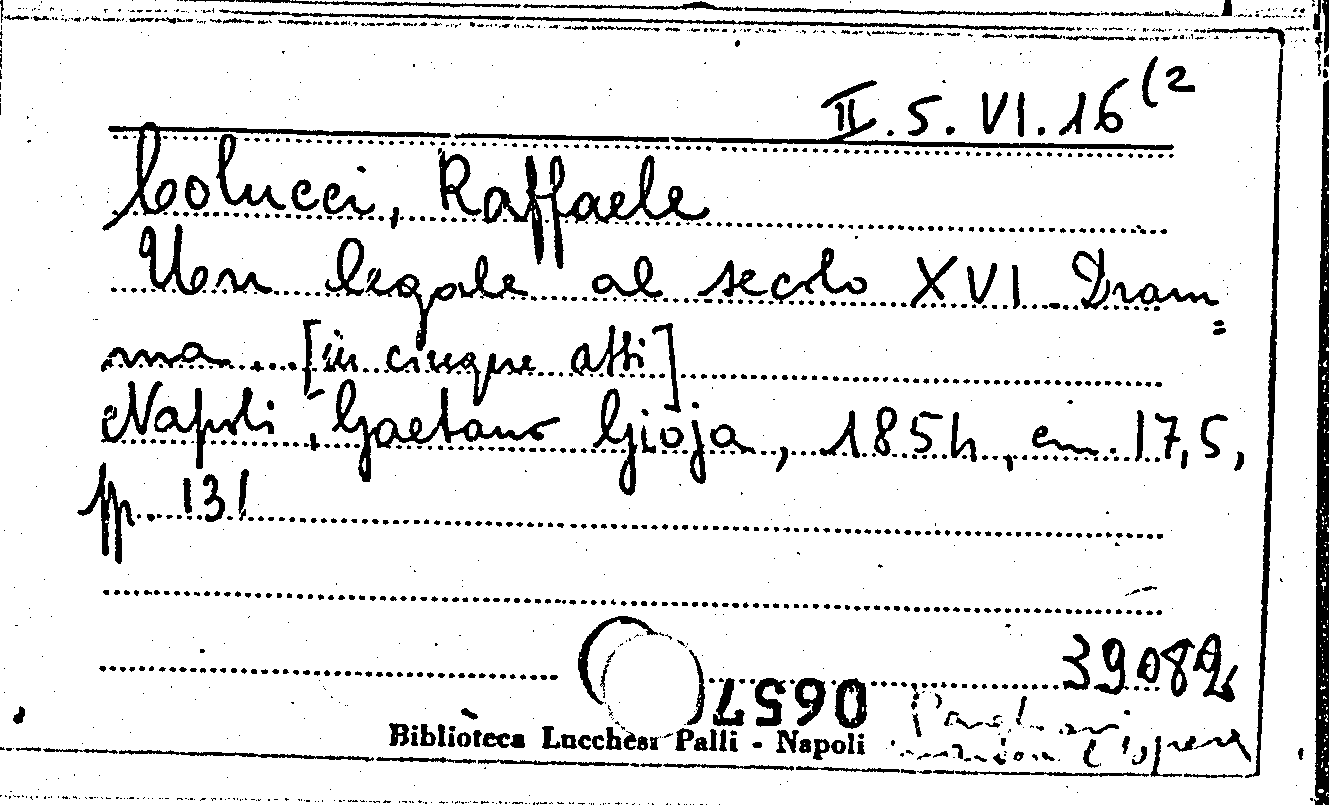 II.5.VI.16(2
Colucci, Raffaele
Un legale al secolo XVI. Dram=
ma ... [in cinque atti]
Napoli, Gaetano Gioja, 1854, cm. 17,5,
pp. 131
39082
0657
Biblioteca Lucchesi Palli - Napoli